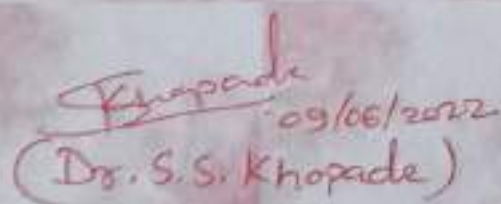 Khopade
09/06/2022
(Dr. S. S. Khopade)